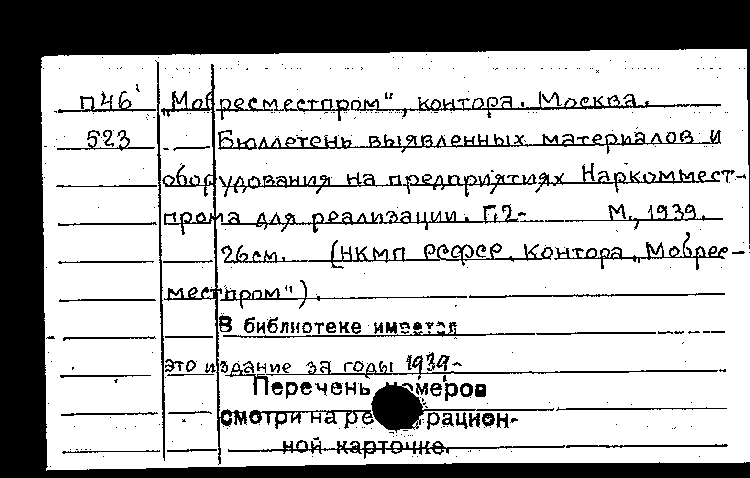 П46 „Мобресместпром", контора. Москва.
523 Бюллетень выявленных материалов и
оборудования на предприятиях Наркоммест-
прома для реализации. Г.2- М., 1939.
26см. (НКМП РСФСР. Контора „Мобрес-
местпром").
В библиотеке имеется
это издание за годы 1939-
Перечень номеров
смотри на регистрацион-
ной карточке.